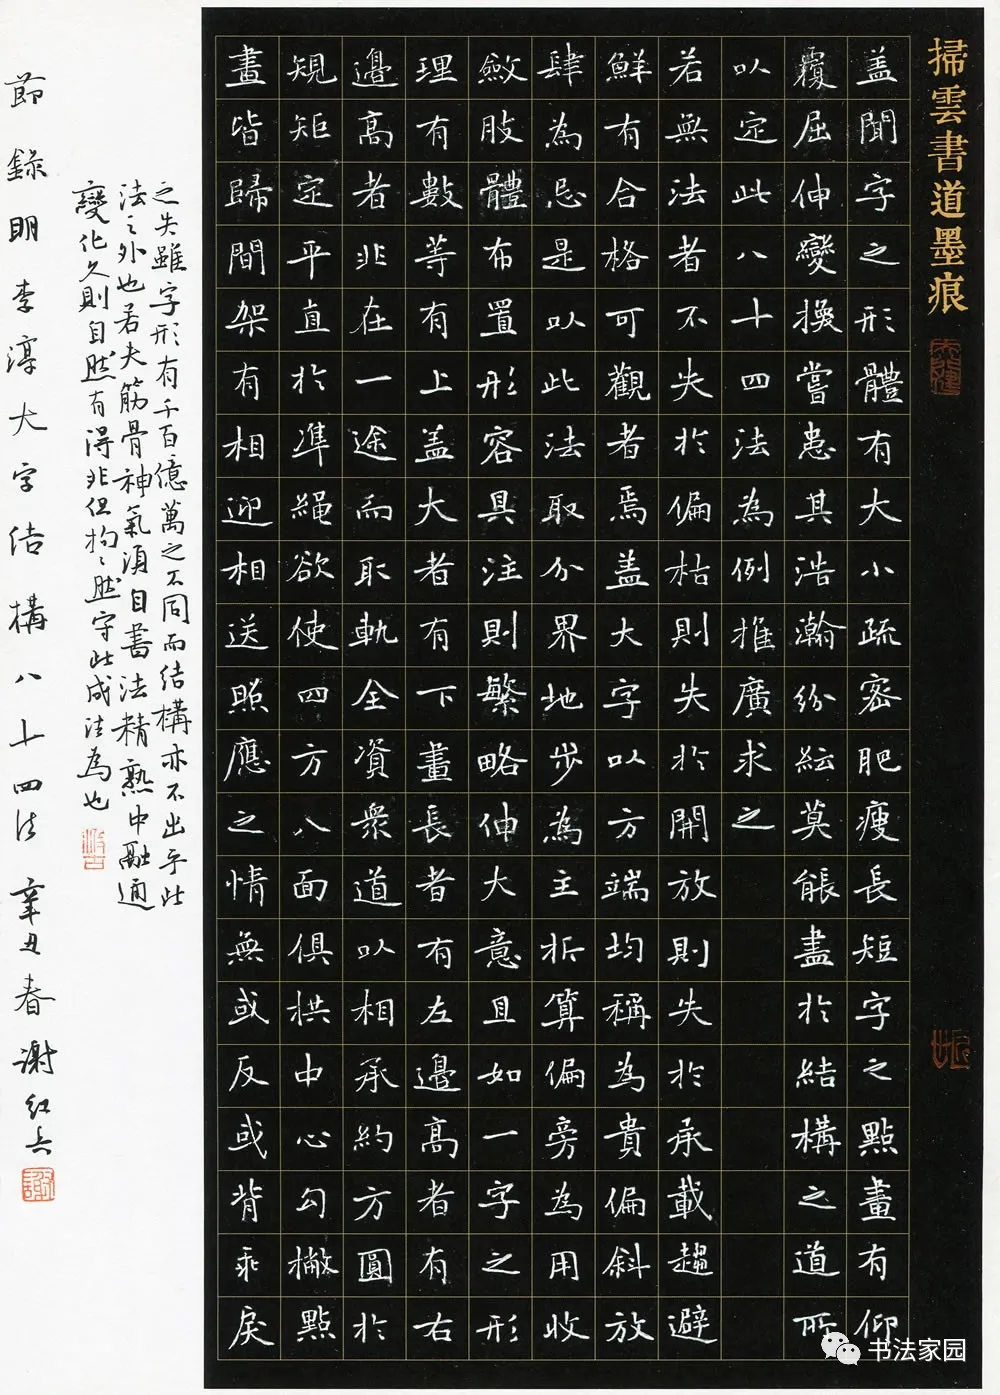 掃雲書道墨痕
盖聞字之形體有大小疏密肥瘦長短字之點畫有仰
覆屈伸變換嘗患其浩瀚紛紜莫能盡於結構之道所
以定此八十四法為例推廣求之
若無法者不失於偏枯則失於開放則失於承載趨避
鮮有合格可觀者焉盖大字以方端均稱為貴偏斜放
肆為忌是以此法取分界地步為主折算偏旁為用收
斂肢體布置形容具注則繁略伸大意且如一字之形
理有數等有上盖大者有下畫長者有左邊高者有右
邊高者非在一途而取軌全資衆道以相承約方圓於
規矩定平直於準繩欲使四方八面俱拱中心勾撇點
畫皆歸間架有相迎相送照應之情無或反或背乖戾
之失雖字形有千百億萬之不同而结構亦不出乎此
法〻外也若夫筋骨神氣須自書法精熟中融通
變化久則自然有得非但拘〻然守此成法為也
節錄明李淳大字结構八十四法 辛丑春 謝红兵
书法家园